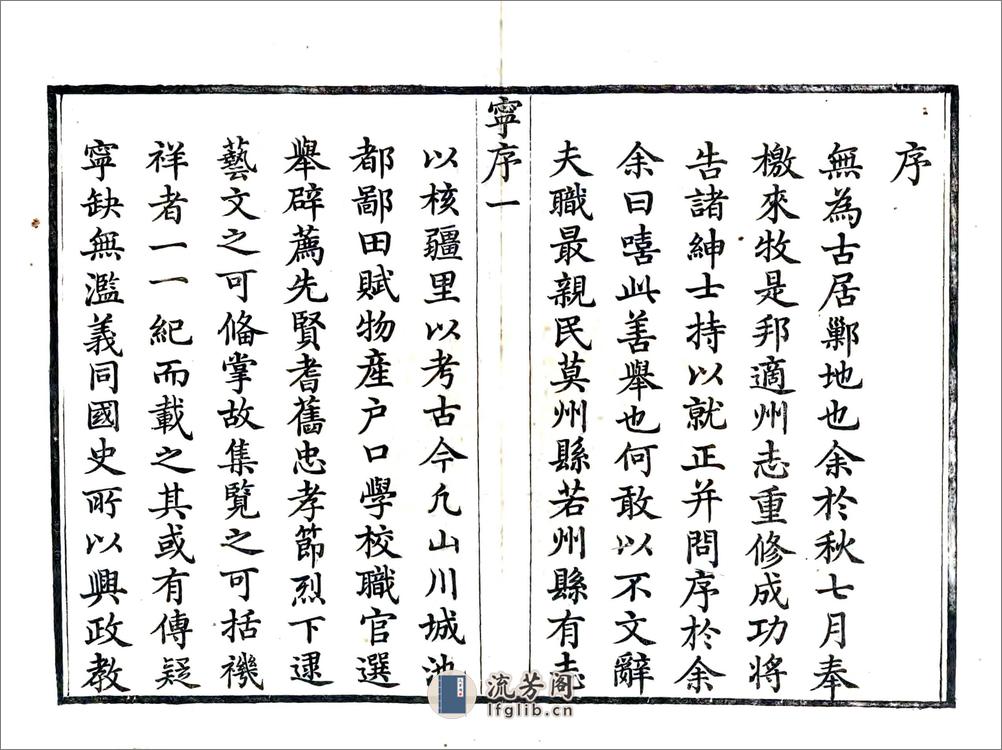 序
無為古居鄛地也余於秋七月奉
檄來牧是邦適州志重修成功將
告諸紳士持以就正并問序於余
余曰嘻此善舉也何敢以不文辭
夫職最親民莫州縣若州縣有志
寧序一
以核疆里以考古今凢山川城池
都鄙田賦物產户口學校職官選
舉辟薦先賢耆舊忠孝節烈下逮
藝文之可偹掌故集覽之可括禨
祥者一一紀而載之其或有傳疑
寧缺無濫義同國史所以興政教
流芳阁
lfglib.cn